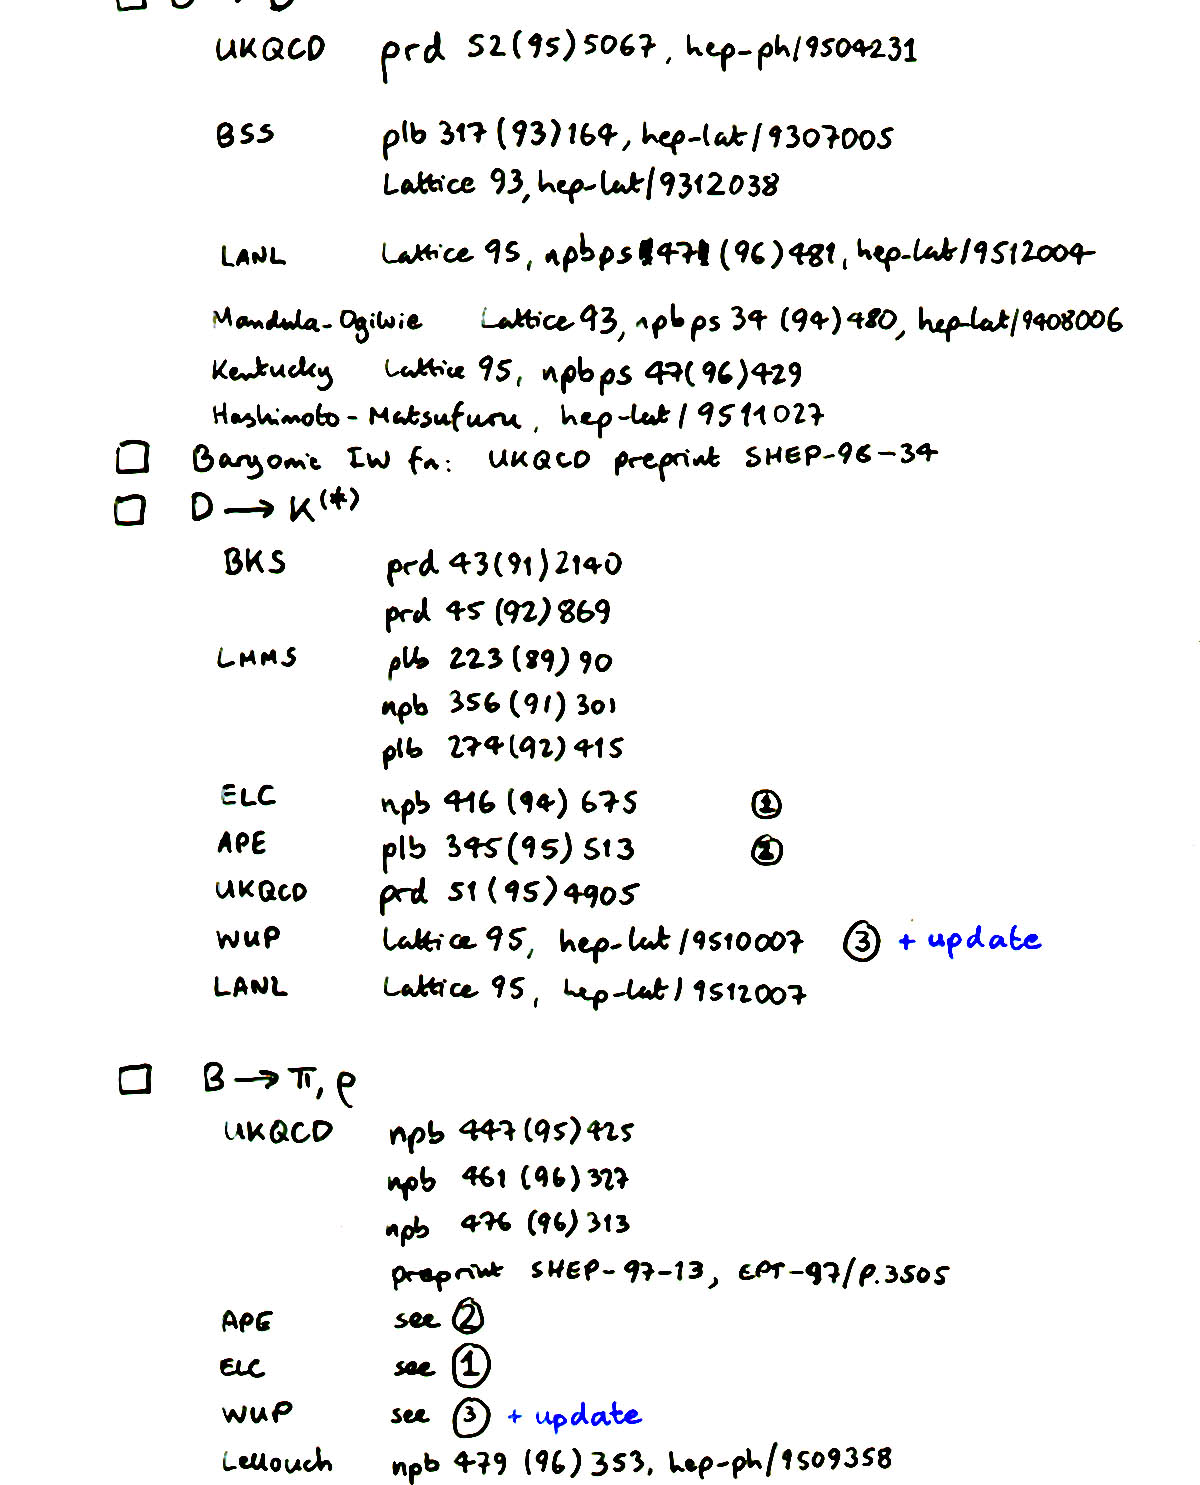 UKQCD prd 52(95)5067, hep-ph/9504231
BSS plb 317(93)164, hep-lat/9307005
Lattice 93, hep-lat/9312038
LANL Lattice 95, npbps 47 (96)481, hep-lat/9512004
Mandula-Ogilvie Lattice 93, npbps 34 (94)480, hep-lat/9408006
Kentucky Lattice 95, npbps 47(96)429
Hashimoto-Matsufuru, hep-lat/9511027
□ Baryonic IW fn: UKQCD preprint SHEP-96-34
□ D → K(*)
BKS prd 43(91)2140
prd 45(92)869
LMMS plb 223(89)90
npb 356(91)301
plb 274(92)415
ELC npb 416(94)675 ①
APE plb 345(95)513 ②
UKQCD prd 51(95)4905
WUP Lattice 95, hep-lat/9510007 ③ + update
LANL Lattice 95, hep-lat/9512007
□ B → π, ρ
UKQCD npb 447(95)425
npb 461(96)327
npb 476(96)313
preprint SHEP-97-13, CPT-97/P.3505
APE see ②
ELC see ①
WUP see ③ + update
Lellouch npb 479(96)353, hep-ph/9509358